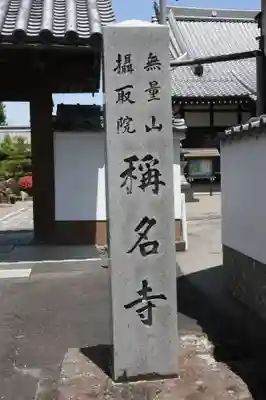 無量山
攝取院
稱名寺